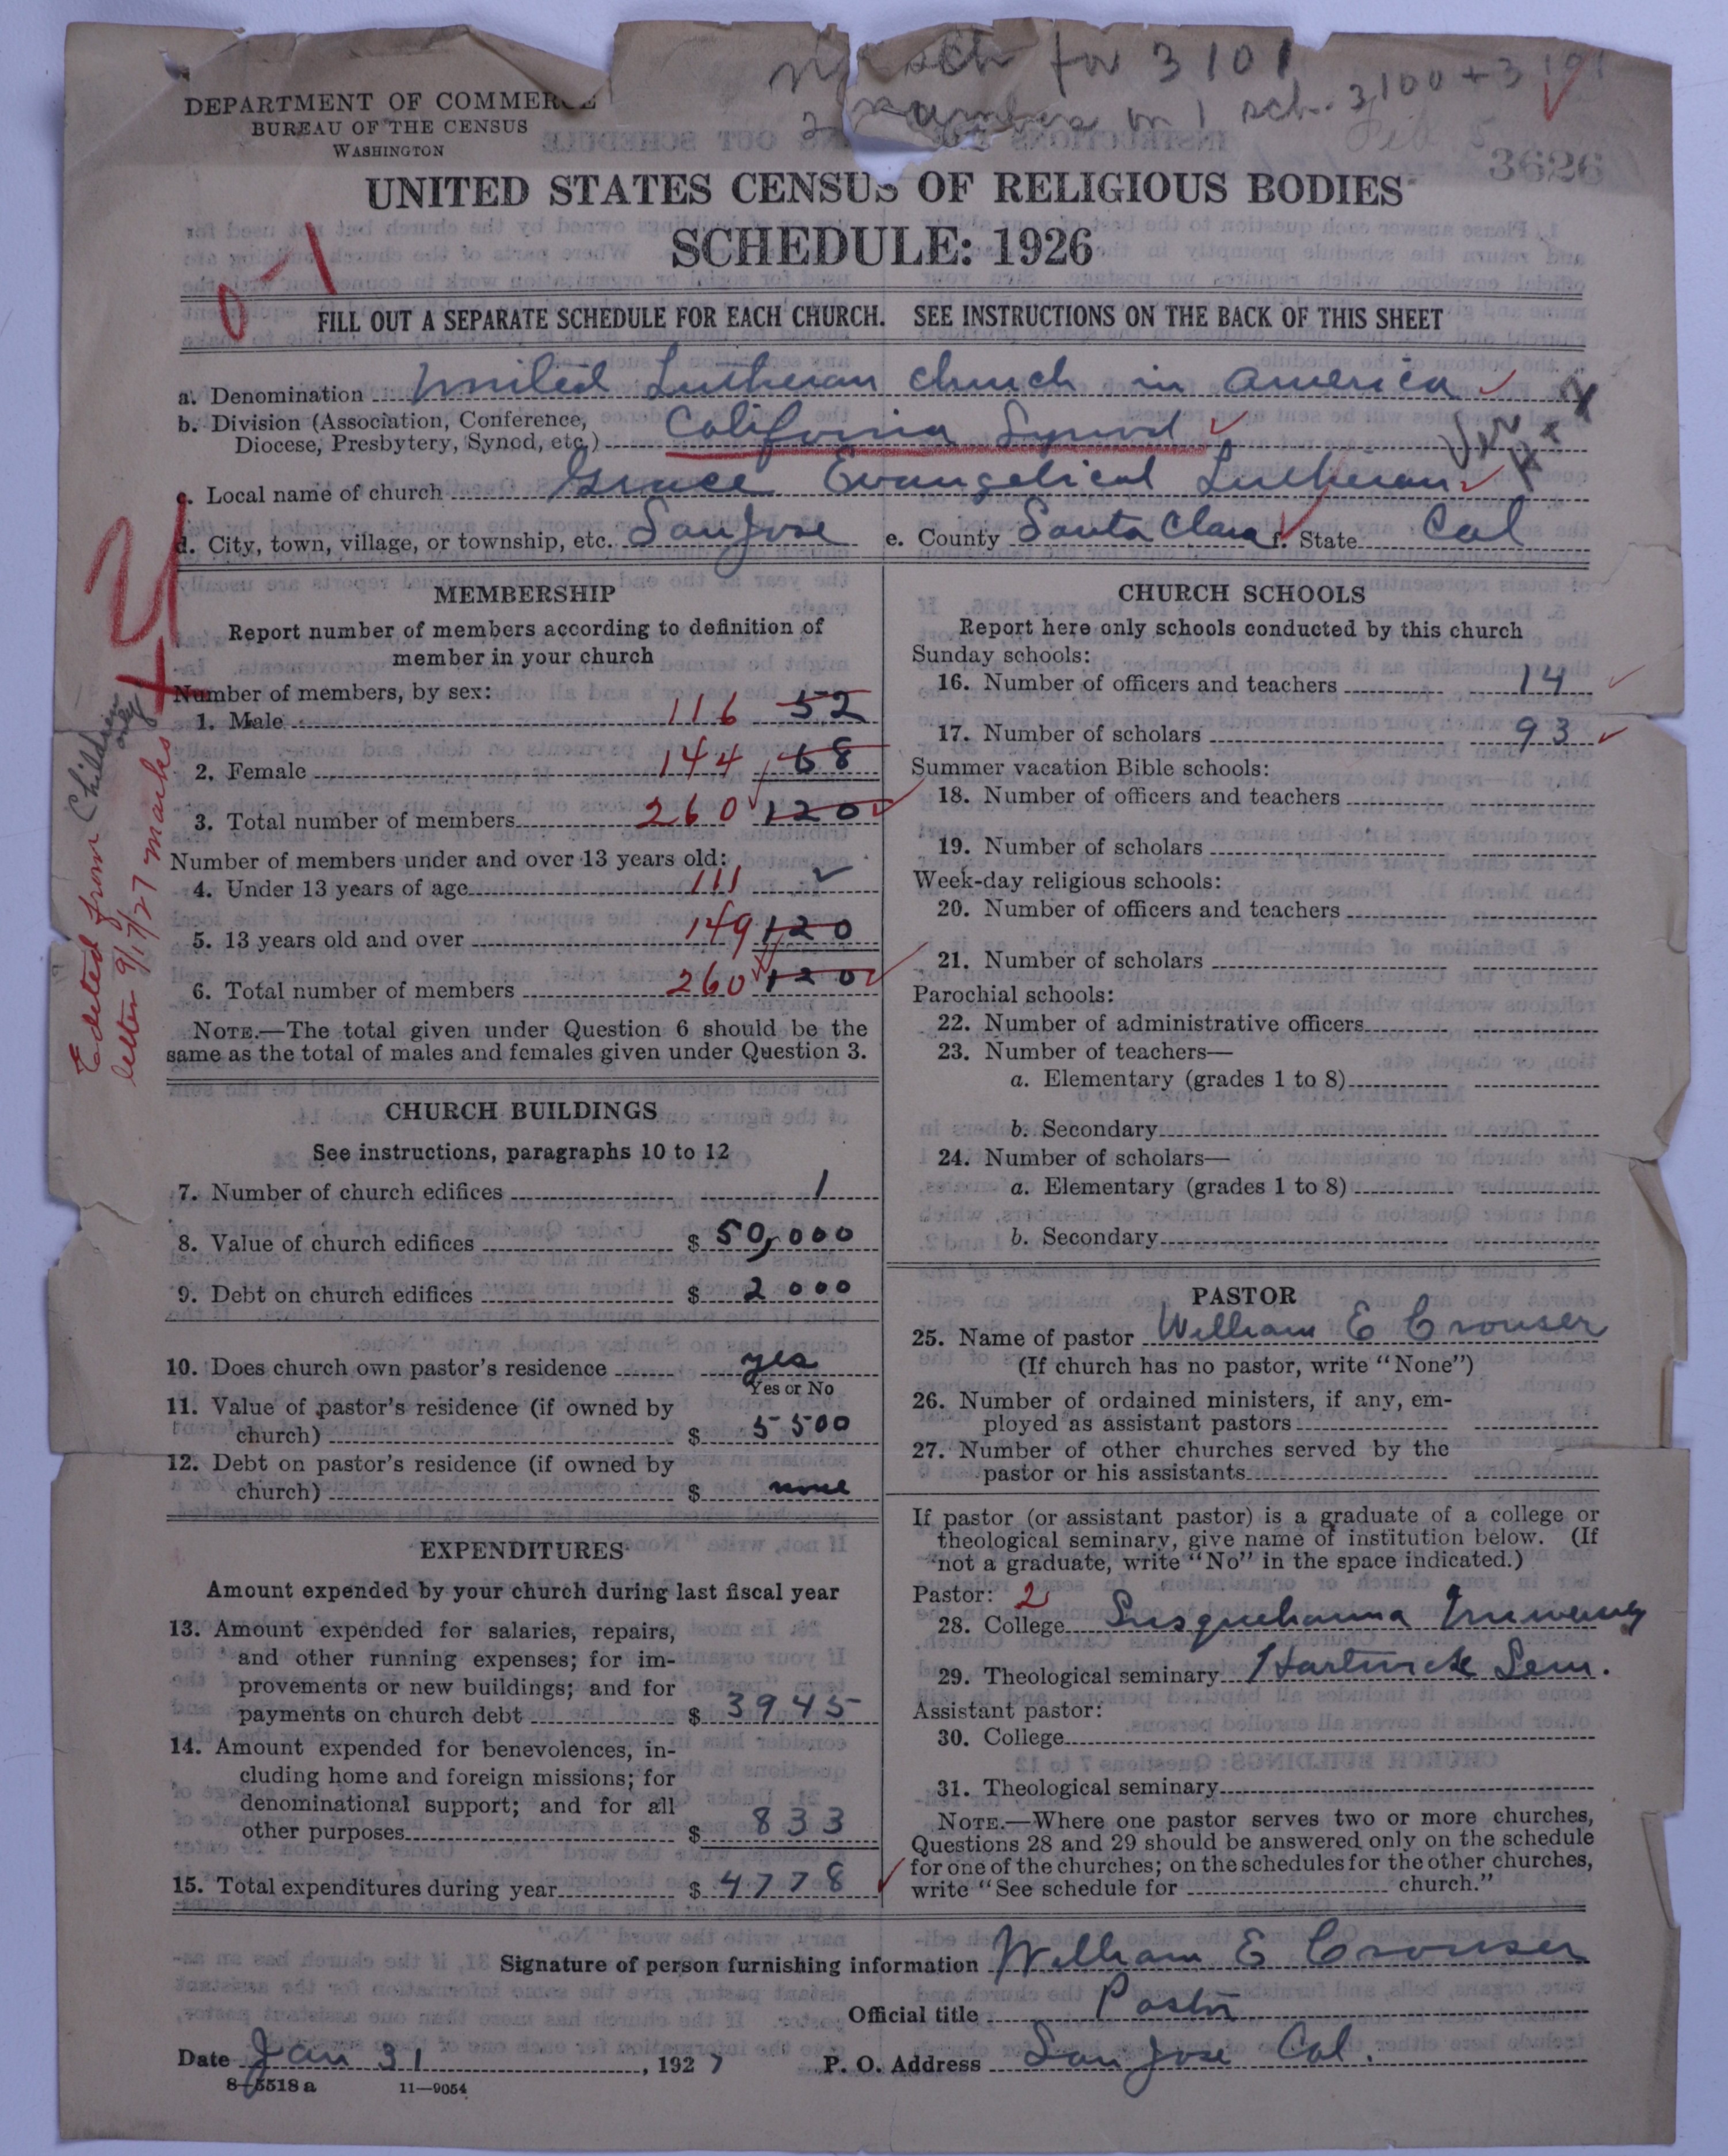 sch for 3101
2 numbers on 1 sch. 3100 + 3101
DEPARTMENT OF COMMERCE
BUREAU OF THE CENSUS
WASHINGTON
Feb 5
3626
UNITED STATES CENSUS OF RELIGIOUS BODIES
SCHEDULE: 1926
0-1
FILL OUT A SEPARATE SCHEDULE FOR EACH CHURCH. SEE INSTRUCTIONS ON THE BACK OF THIS SHEET
a. Denomination United Lutheran Church in America
b. Division (Association, Conference,
Diocese, Presbytery, Synod, etc.) California Synod
c. Local name of church Grace Evangelical Lutheran
d. City, town, village, or township, etc. San Jose e. County Santa Clara f. State Cal
MEMBERSHIP
Report number of members according to definition of
member in your church
Number of members, by sex:
1. Male 116 52
2. Female 144 68
3. Total number of members 260 120
Number of members under and over 13 years old:
4. Under 13 years of age 111
5. 13 years old and over 149 120
6. Total number of members 260 120
NOTE.—The total given under Question 6 should be the
same as the total of males and females given under Question 3.
Edited from Children only
letter 9/17/27 marks
CHURCH BUILDINGS
See instructions, paragraphs 10 to 12
7. Number of church edifices 1
8. Value of church edifices $ 50,000
9. Debt on church edifices $ 2000
10. Does church own pastor's residence yes
Yes or No
11. Value of pastor's residence (if owned by
church) $ 5500
12. Debt on pastor's residence (if owned by
church) $ none
EXPENDITURES
Amount expended by your church during last fiscal year
13. Amount expended for salaries, repairs,
and other running expenses; for im-
provements or new buildings; and for
payments on church debt $ 3945
14. Amount expended for benevolences, in-
cluding home and foreign missions; for
denominational support; and for all
other purposes $ 833
15. Total expenditures during year $ 4778
CHURCH SCHOOLS
Report here only schools conducted by this church
Sunday schools:
16. Number of officers and teachers 14
17. Number of scholars 93
Summer vacation Bible schools:
18. Number of officers and teachers
19. Number of scholars
Week-day religious schools:
20. Number of officers and teachers
21. Number of scholars
Parochial schools:
22. Number of administrative officers
23. Number of teachers—
a. Elementary (grades 1 to 8)
b. Secondary
24. Number of scholars—
a. Elementary (grades 1 to 8)
b. Secondary
PASTOR
25. Name of pastor William E Crouser
(If church has no pastor, write "None")
26. Number of ordained ministers, if any, em-
ployed as assistant pastors
27. Number of other churches served by the
pastor or his assistants
If pastor (or assistant pastor) is a graduate of a college or
theological seminary, give name of institution below. (If
not a graduate, write "No" in the space indicated.)
Pastor: 2
28. College Susquehanna University
29. Theological seminary Hartwick Sem.
Assistant pastor:
30. College
31. Theological seminary
NOTE.—Where one pastor serves two or more churches,
Questions 28 and 29 should be answered only on the schedule
for one of the churches; on the schedules for the other churches,
write "See schedule for church."
Signature of person furnishing information William E Crouser
Official title Pastor
Date Jan 31, 1927 P. O. Address San Jose Cal.
8-5518 a 11—9054